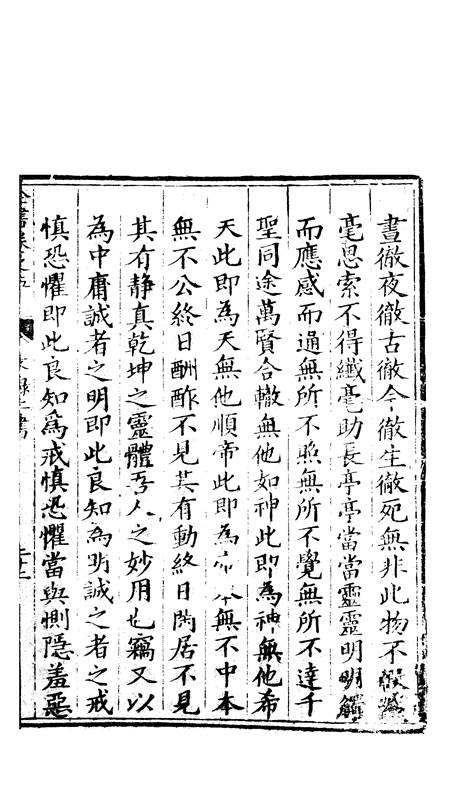 晝徹夜徹古徹今徹生徹死無非此物不
毫思索不得纖毫助長亭亭當當靈靈明明觸
而應感而通無所不照無所不覺無所不達千
聖同途萬賢合轍無他如神此即為神無他希
天此即為天無他順帝此即為帝本無不中本
無不公終日酬酢不見其有動終日閒居不見
其有靜真乾坤之靈體吾人之妙用也竊又以
為中庸誠者之明即此良知為明誠之者之戒
慎恐懼即此良知為戒慎恐懼當與惻隱羞惡
全書卷之五
文錄二書